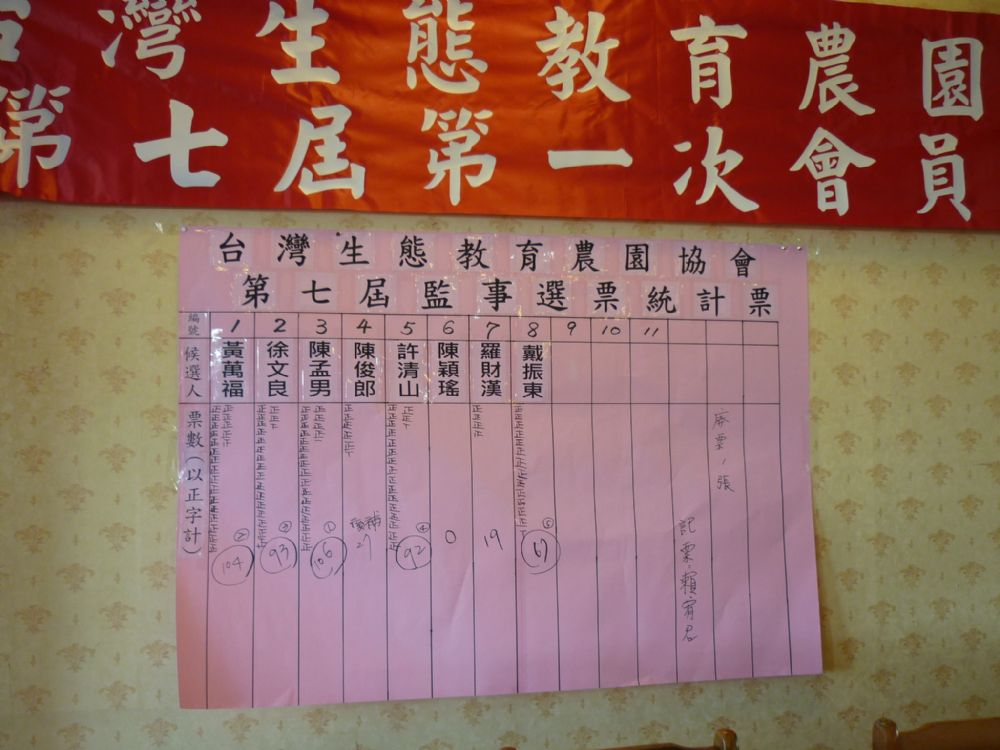 台灣生態教育農園
第七屆第一次會員
台灣生態教育農園協會
第七屆監事選票統計票
編號 1 2 3 4 5 6 7 8 9 10 11
候選人 黃萬福 徐文良 陳孟男 陳俊郎 許清山 陳穎瑤 羅財漢 戴振東
票數（以正字計）
② 104
③ 93
① 106
候補 27
④ 92
0
19
⑤ 67
廢票1張
記票:賴宥君